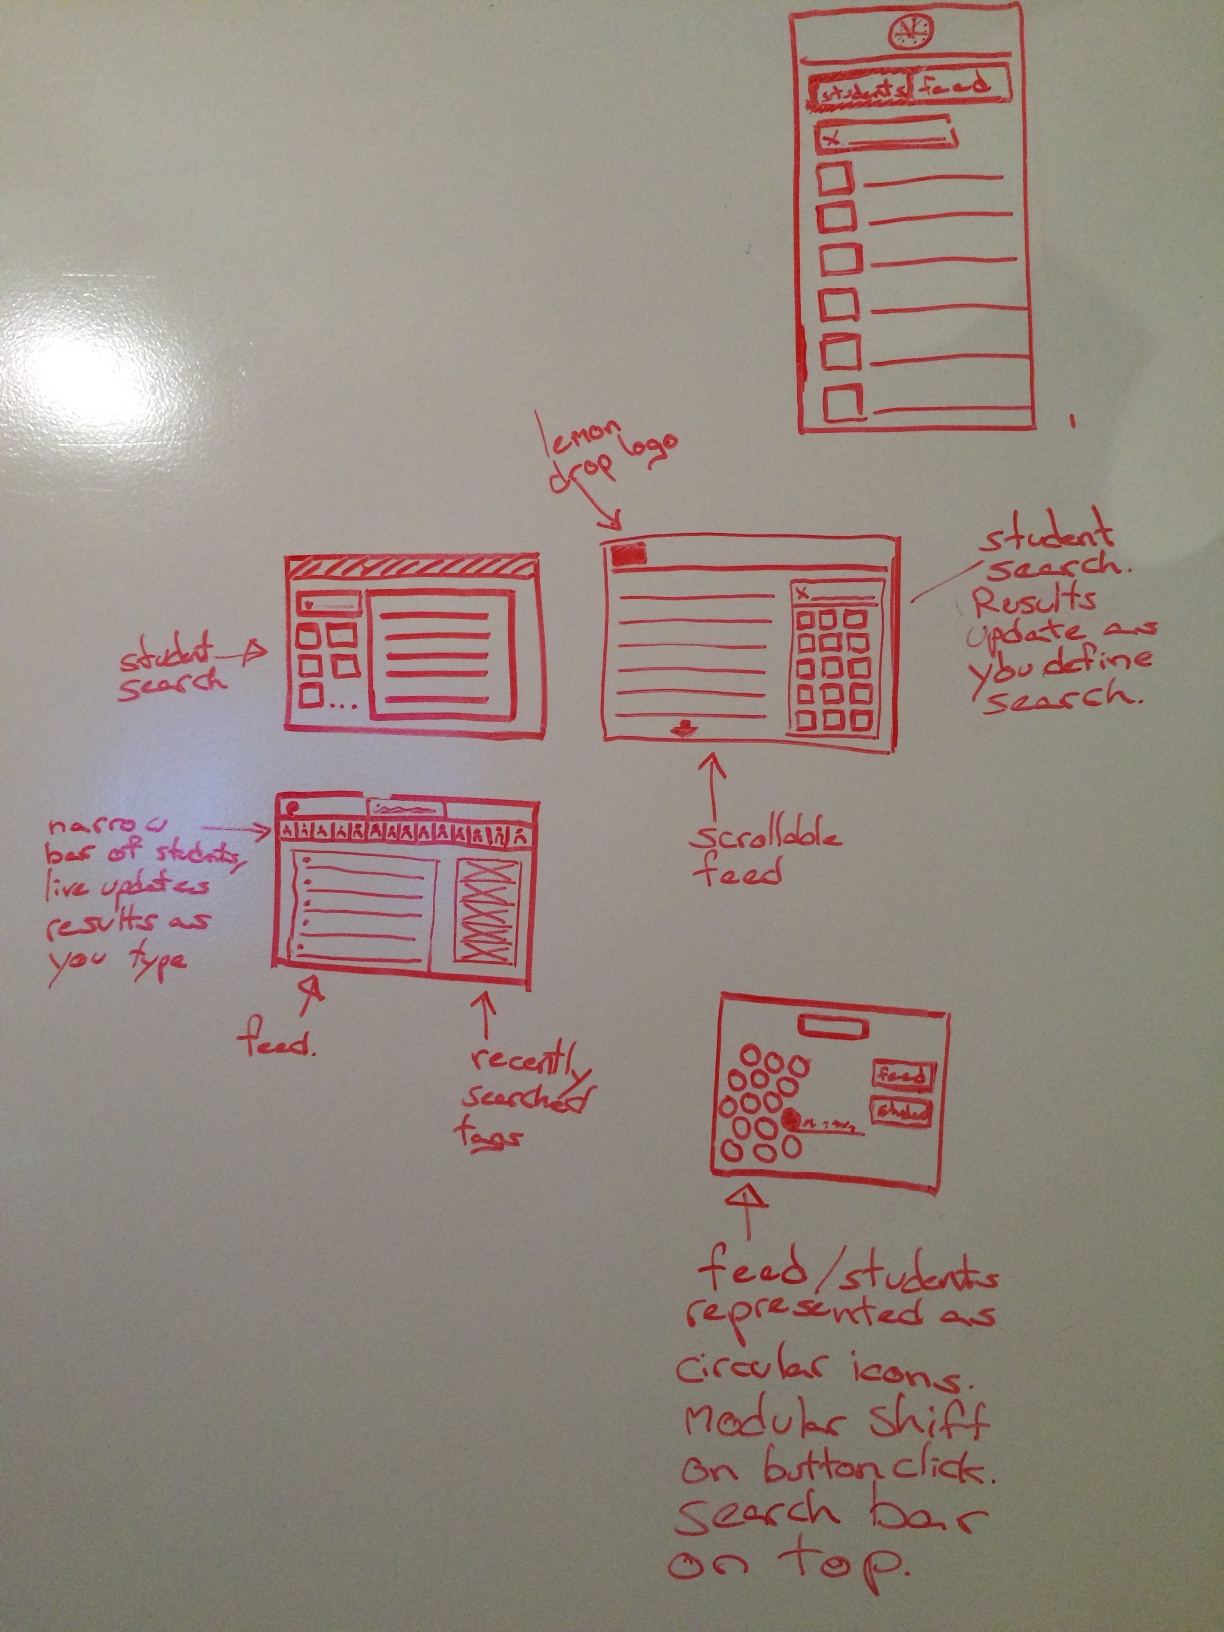 students feed
x
lemon
drop logo
student
search.
Results
update as
you define
search.
x
student
search
scrollable
feed
narrow
bar of students,
live updates
results as
you type
feed.
recently
searched
tags
feed
student
feed/students
represented as
circular icons.
Modular shift
on button click.
Search bar
on top.